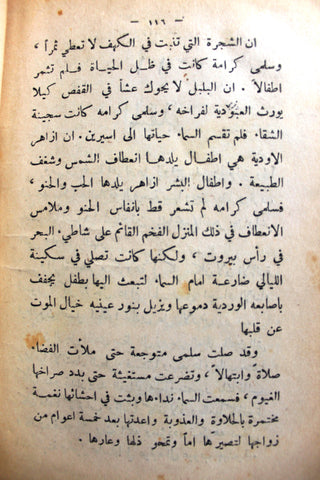 — ١١٦ —
ان الشجرة التي تنبت في الكهف لا تعطي ثمراً ،
وسلمى كرامة كانت في ظل الحياة فلم تشمر
اطفالاً . ان البلبل لا يحوك عشاً في القفص كيلا
يورث العبودية لفراخه ، وسلمى كرامه كانت سجينة
الشقاء فلم تقسم السماء حياتها الى اسيرين . ان ازاهر
الاودية هي اطفال يلدها انعطاف الشمس وشغف
الطبيعة . واطفال البشر ازاهر يلدها الحب والحنو ،
فسلمى كرامه لم تشعر قط بانفاس الحنو وملامس
الانعطاف في ذلك المنزل الفخم القائم على شاطي البحر
في رأس بيروت ، ولكنها كانت تصلي في سكينة
الليالي ضارعة امام السماء لتبعث اليها بطفل يجفف
باصابعه الوردية دموعها ويزيل بنور عينيه خيال الموت
عن قلبها
وقد صلت سلمى متوجعة حتى ملأت الفضاء
صلاة وابتهالاً ، وتضرعت مستغيثة حتى بدد صراخها
الغيوم ، فسمعت السماء نداءها وبثت في احشائها نغمة
مختمرة بالحلاوة والعذوبة واعدتها بعد خمسة اعوام من
زواجها لتصيرها اماً وتمحو ذلها وعارها .